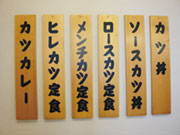 カツ丼
ソースカツ丼
ロースカツ定食
メンチカツ定食
ヒレカツ定食
カツカレー